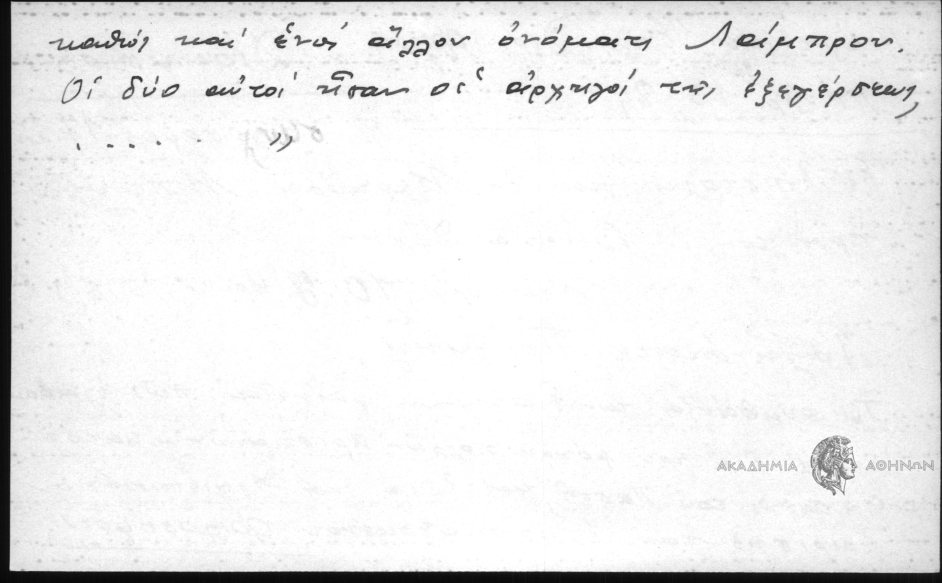 καθώς καί ἑνός ἄλλου ὀνόματι Λάμπρου.
Οἱ δύο αὐτοί ἦσαν οἱ ἀρχηγοί τῆς ἐξεγέρσεως,
. . . . . . »
ΑΚΑΔΗΜΙΑ ΑΘΗΝΩΝ